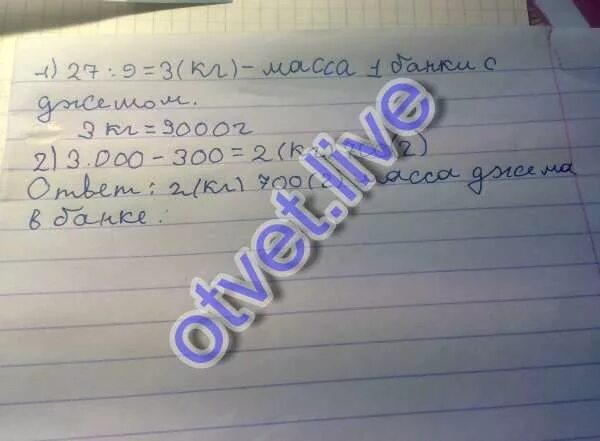 1) 27 : 9 = 3 (кг) – масса 1 банки с
джемом.
3 кг = 3000 г
2) 3.000 – 300 = 2 (кг) 700 (г)
Ответ: 2 (кг) 700 (г) масса джема
в банке.
otvet.live